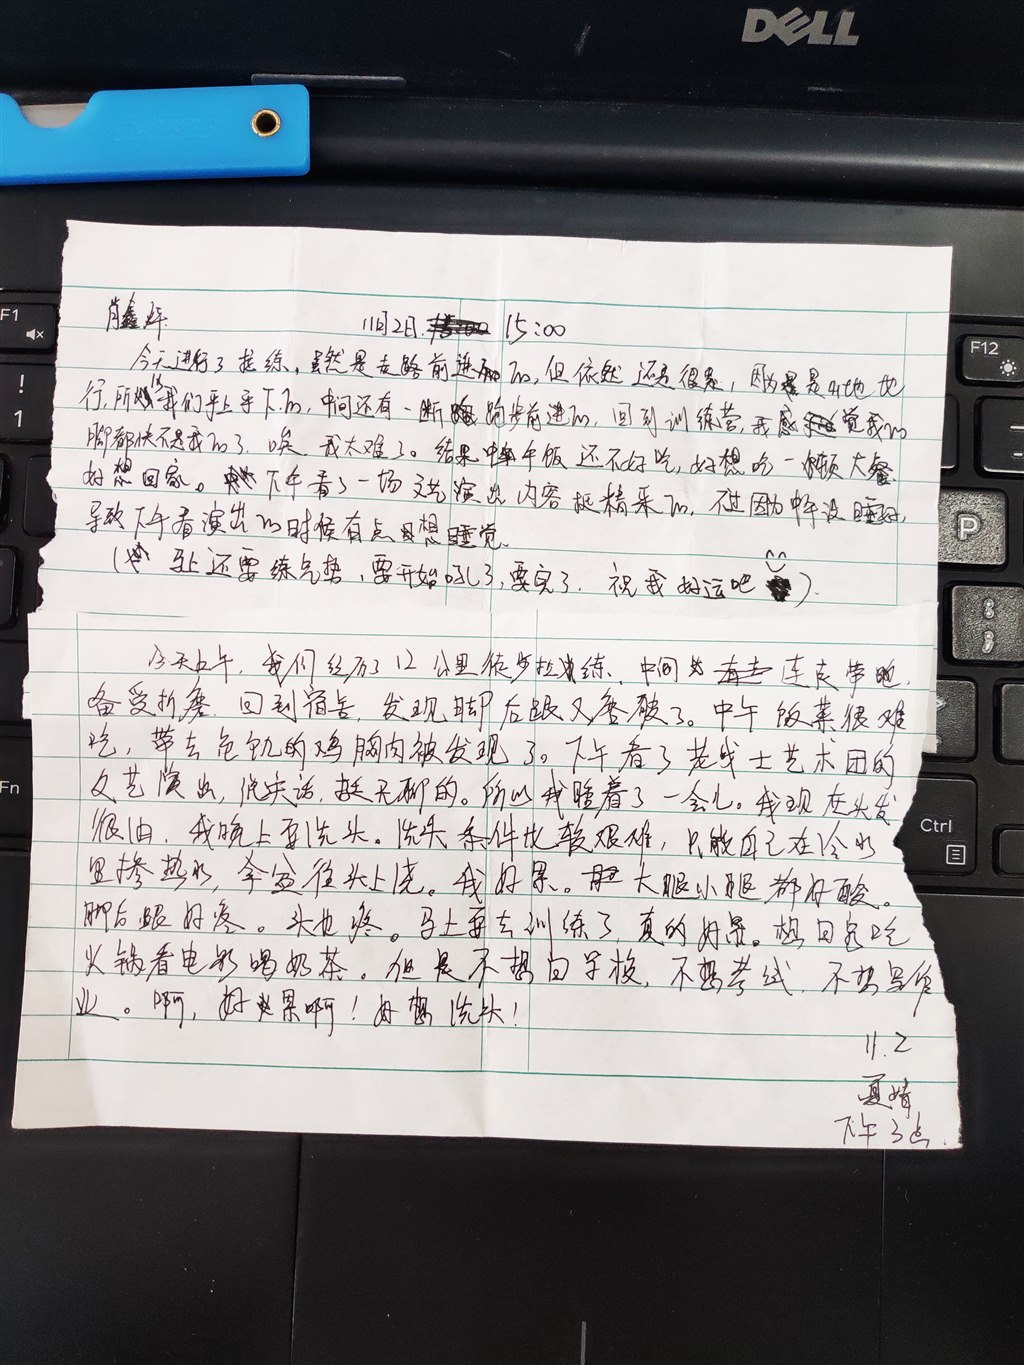 DELL
F1
F12
!
1
P
Fn
Ctrl
肖鑫
11月2日. 15:00
今天进行了拉练，虽然是走路前进的，但依然还是很累，因为是山地地
行，所以我们手上手下的，中间还有一断跑步前进的，回到训练营，我感觉我的
脚都快不是我的了，唉，我太难了。结果中午饭还不好吃，好想吃一顿大餐
好想回家。下午看了一场文艺演出内容挺精采的，不过因为中午没睡好，
导致下午看演出的时候有点想睡觉。
（马上还要练气势，要开始吼了，要完了，祝我好运吧）.
今天上午，我们经历了12公里徒步拉练，中间连走带跑，
备受折磨，回到宿舍，发现脚后跟又磨破了。中午饭菜很难
吃，带去包饥的鸡胸肉被发现了。下午看了老战士艺术团的
文艺演出，说实话，挺无聊的。所以我睡着了一会儿。我现在头发
很油，我晚上要洗头。洗头条件比较艰难，只能自己在冷水
里掺热水，拿盆往头上浇。我好累。大腿小腿都好酸。
脚后跟好疼。头也疼。马上要去训练了，真的好累。想回家吃
火锅看电影喝奶茶。但是不想回学校，不想考试，不想写作
业。啊，好累啊！好想洗头！
11.2
夏婧
下午3点.